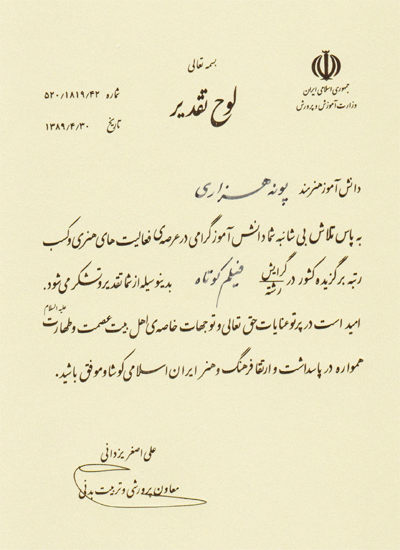 بسمه تعالی
جمهوری اسلامی ایران
وزارت آموزش و پرورش
لوح تقدیر
شماره ۵۲۰/۱۸۱۹/۴۲
تاریخ ۱۳۸۹/۴/۳۰
دانش آموز هنرمند پونه هزاری
به پاس تلاش بی شائبه شما دانش آموز گرامی در عرصه ی فعالیت های هنری و کسب
رتبه برگزیده کشور در گرایش رشته فیلم کوتاه بدینوسیله از شما تقدیر و تشکر می شود.
امید است در پرتو عنایات حق تعالی و توجهات خاصه ی اهل بیت عصمت و طهارت علیه السلام
همواره در پاسداشت و ارتقا فرهنگ و هنر ایران اسلامی کوشا و موفق باشید.
علی اصغر یزدانی
معاون پرورشی و تربیت بدنی